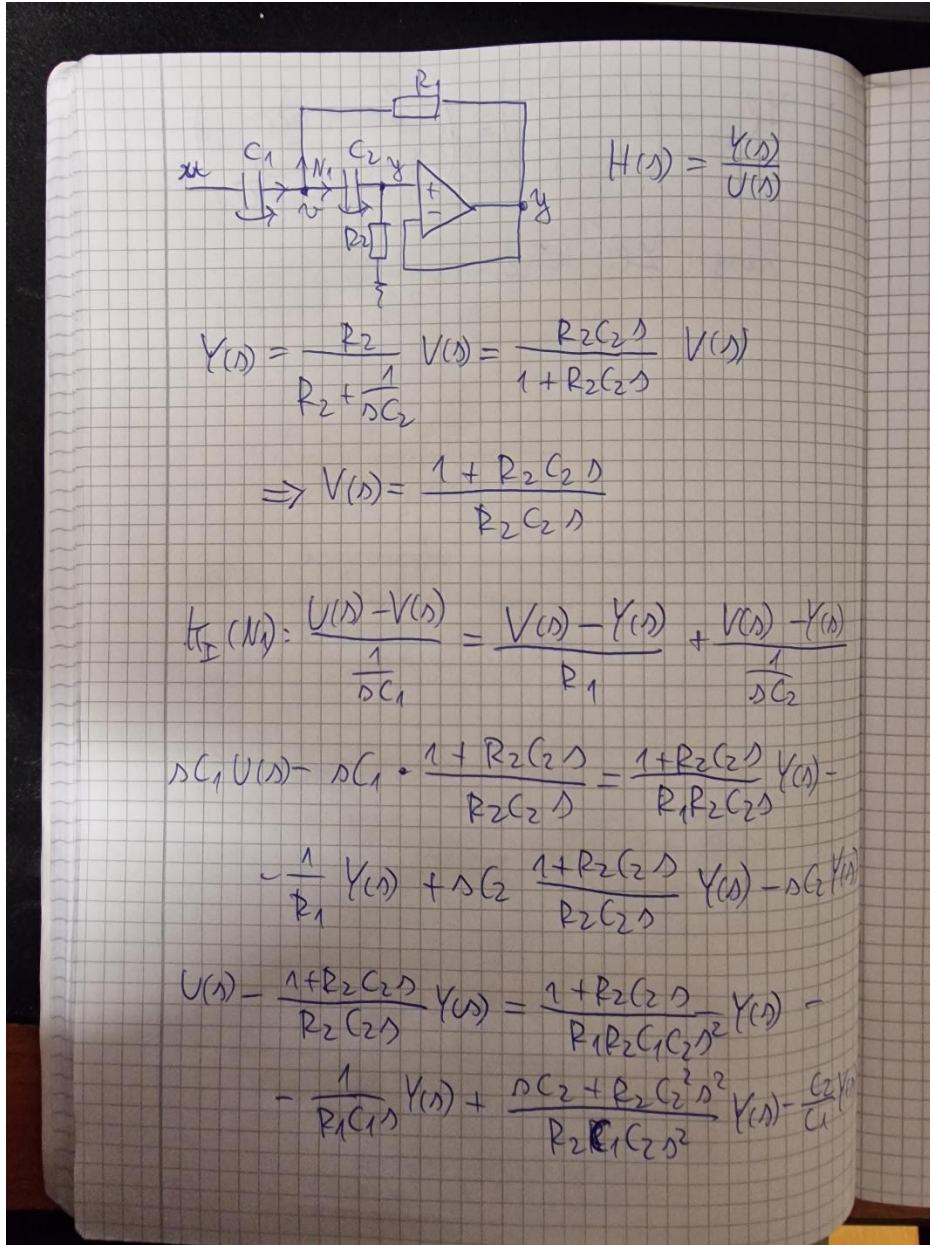 R1
C1 N1 C2 y
H(s) = Y(s)/U(s)
u v + − y
R2
Y(s) = R2/(R2 + 1/(sC2)) V(s) = R2C2s/(1+R2C2s) V(s)
⇒ V(s) = (1 + R2C2s)/(R2C2s)
KI(N1): (U(s) − V(s))/(1/(sC1)) = (V(s) − Y(s))/R1 + (V(s) − Y(s))/(1/(sC2))
sC1U(s) − sC1 · (1 + R2C2s)/(R2C2s) = (1+R2C2s)/(R1R2C2s) Y(s) −
− 1/R1 Y(s) + sC2 (1+R2C2s)/(R2C2s) Y(s) − sC2 Y(s)
U(s) − (1+R2C2s)/(R2C2s) Y(s) = (1+R2C2s)/(R1R2C1C2s²) Y(s) −
− 1/(R1C1s) Y(s) + (sC2 + R2C2²s²)/(R2C1C2s²) Y(s) − C2/C1 Y(s)